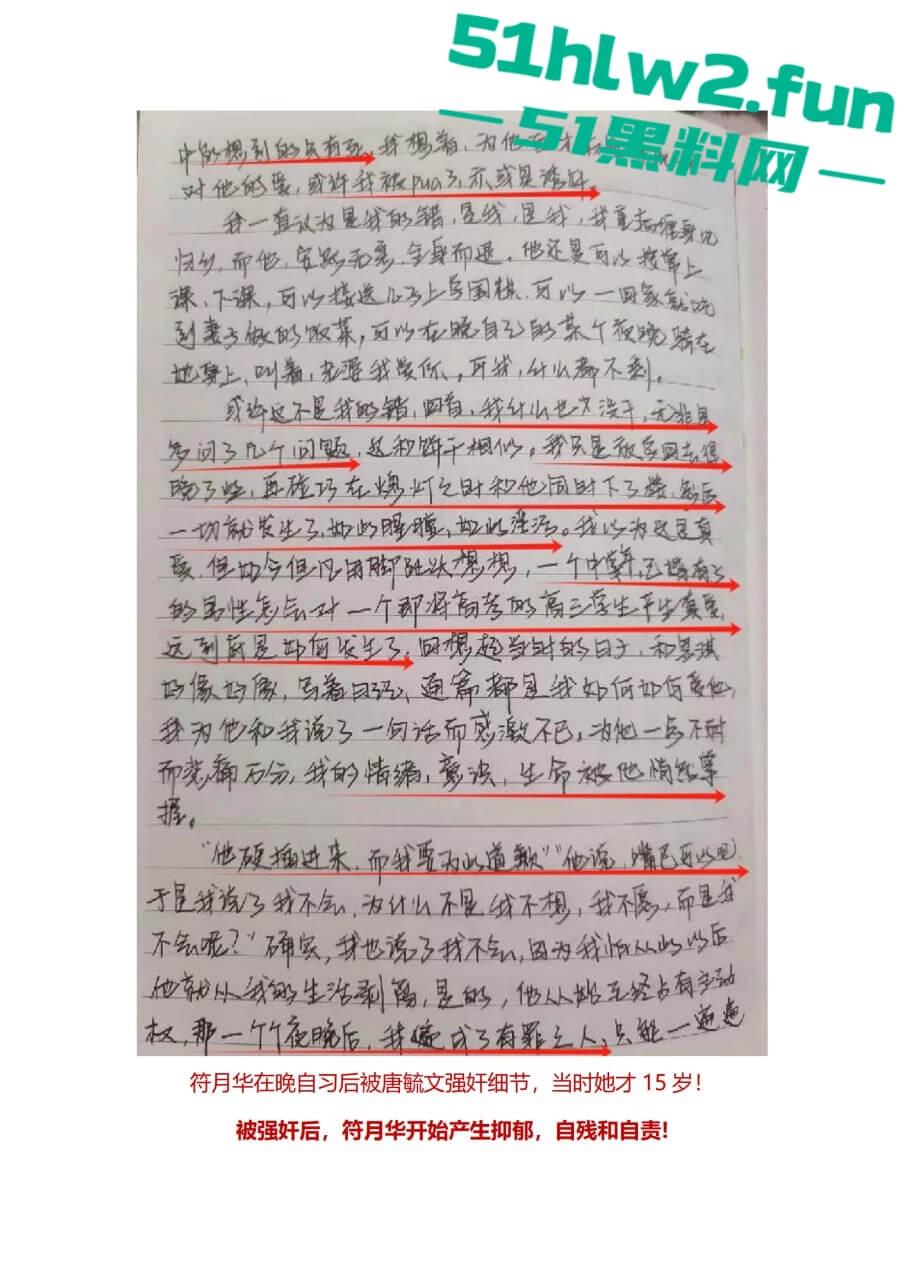 51hlw2.fun
51黑料网
中能想到的只有死。我想着,为他
对他的爱,或许我被pua了,亦或是诱奸。
我一直认为是我的错,是我,是我,我
归乡,而他,安然无恙,全身而退。他还是可以按部上
课、下课,可以接送儿子上学围棋,可以一回家就吃
到妻子做的饭菜,可以在晚自习的某个夜晚骑在
她身上,叫着,老婆我爱你。可我,什么都不剩。
或许这不是我的错,回首,我什么也没干,无非是
多问了几个问题,这和饼干相似。我只是放学回去得
晚了些,再碰巧在熄灯之时和他同时下了楼,然后
一切就发生了,如此腥膻,如此淫活。我以为这是真
爱,但如今但凡用脚趾头想想,一个中年,已婚有子
的男性怎么会对一个即将高考的高三学生产生真爱,
这到底是如何发生了。回想起当时的日子,和思琪
好像好像,写着日记,通篇都是我如何如何爱他,
我为他和我说了一句话而感激不已,为他一点不耐
而悲痛万分,我的情绪,意识,生命被他悄然掌
握。
“他硬插进来,而我要为此道歉”“他说,嘴巴可以吧,
于是我说了我不会,为什么不是我不想,我不愿,而是我
不会呢?”确实,我也说了我不会,因为我怕从此以后
他就从我的生活剥离,是的,他从始至终占有主动
权,那一个个夜晚后,我便成了有罪之人,只能一遍遍
符月华在晚自习后被唐毓文强奸细节,当时她才 15 岁!
被强奸后,符月华开始产生抑郁,自残和自责!